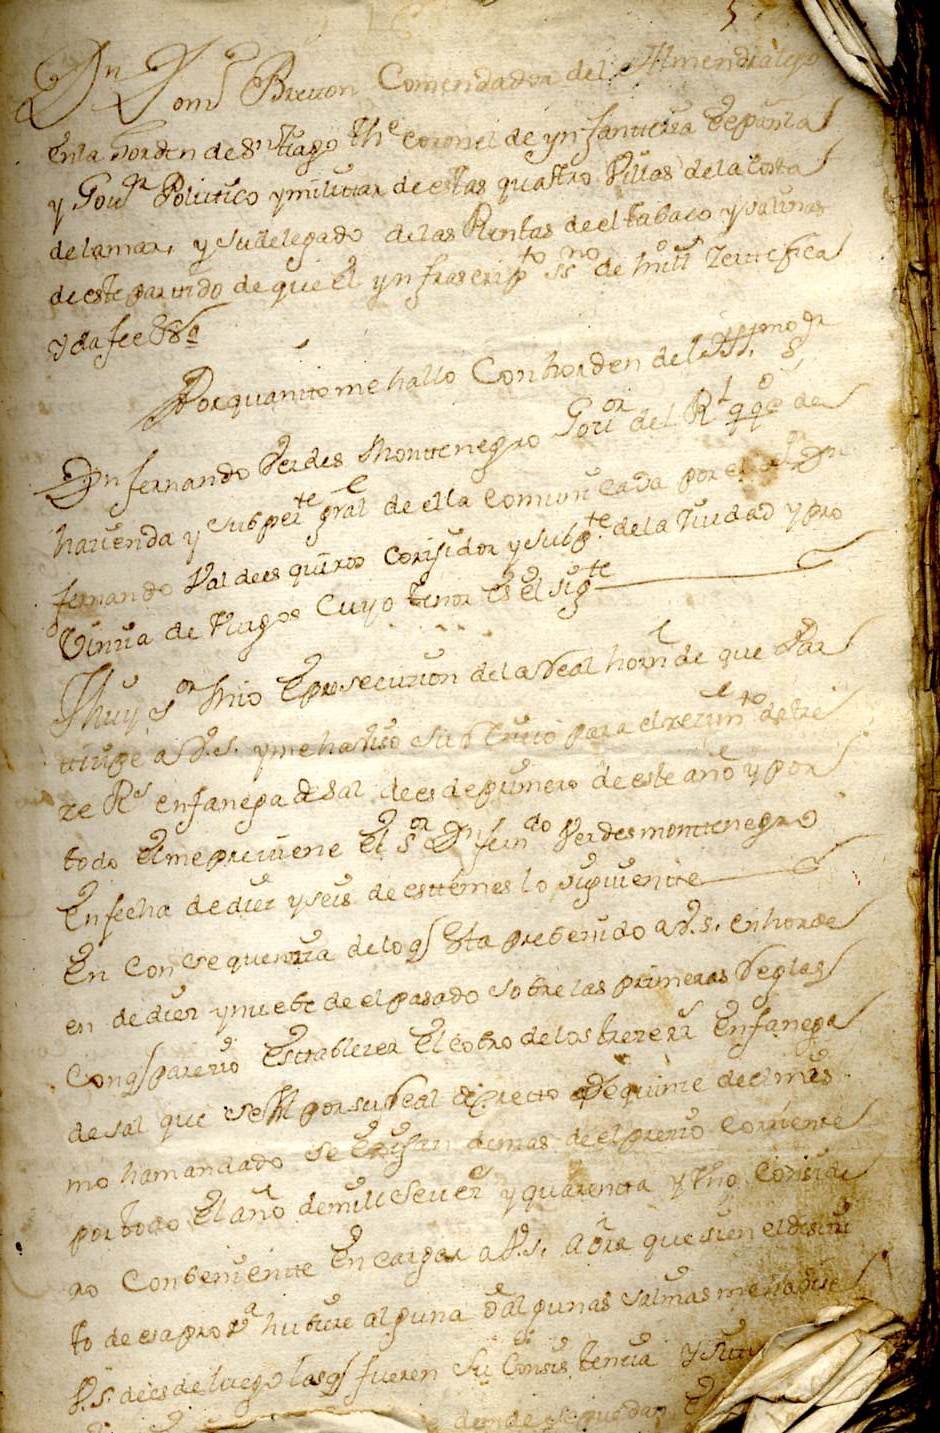 5
Dn Domo Breton Comendador del Almendralejo
en la horden de Sn tiago thee coronel de ynfanteria Española
y Govr Politico y militar de estas quatro Villas de la costa
de la mar, y sudelegado de las Rentas de el tabaco y salinas
de este partido de que el ynfrascripto ssno de
y da fee
Por quanto me hallo Con horden del Illmo Sr
Dn fernando Verdes Montenegro Govor del Rl de
hacienda y subperte gral de ella comunicada por el Sr Dn
fernando Valdes quiros Corijidor y subpte de la Ciudad y pro
Vincia de tiago Cuyo tenor es el sigte
Muy sor mio En prosecucion de la Real horn de que Par
ticipe a V.S. y me ha dado su para el recivto de tre
ze Rs en fanega de Sal desde primero de este año y por
todo El me previene El Sor Dn ferndo Verdes montenegro
En fecha de diez y seis de este mes lo siguiente
En Consequencia de lo q esta prebenido a V.S. en horde
en de diez y nuebe de el pasado sobre las primeras Reglas
Con q parecio Establezer El cobro de los treze rr En fanega
de sal que SM por su Real decreto de quince de el mis
mo ha mandado se Exijan demas de el precio corriente
por todo El año de mill setezs y quarenta y uno Conside
ro Conbeniente En cargar a V.S. aora que si en el distri
to de esa prova hubiere alguna o algunas salinas
V.S. desde luego las q fueren su Consistencia y
donde se quedan